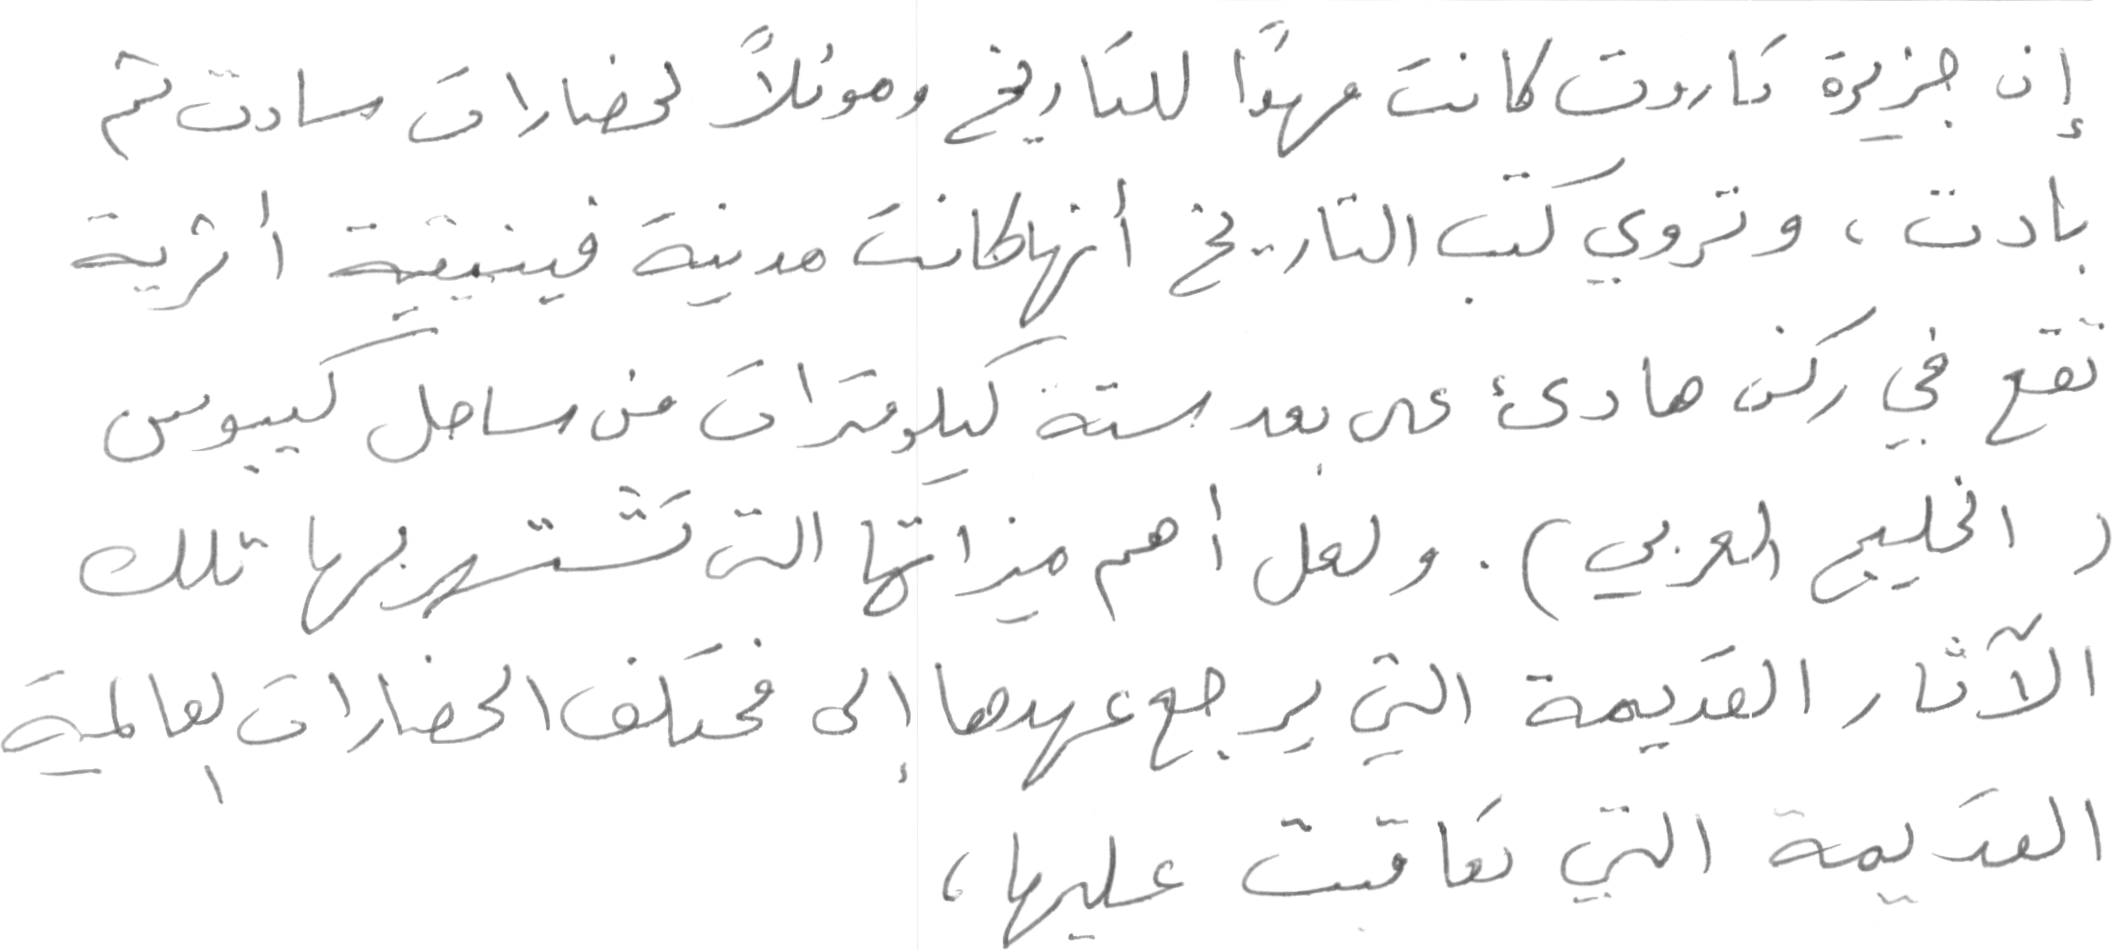 إن جزيرة تاروت كانت مهدًا للتاريخ وموئلاً لحضارات سادت ثم
بادت، وتروي كتب التاريخ أنها كانت مدينة فينيقية أثرية
تقع في ركن هادئ على بعد ستة كيلومترات من ساحل كيبوس
(الخليج العربي). ولعل أهم ميزاتها التي تشتهر بها تلك
الآثار القديمة التي يرجع عهدها إلى مختلف الحضارات العالمية
القديمة التي تعاقبت عليها،